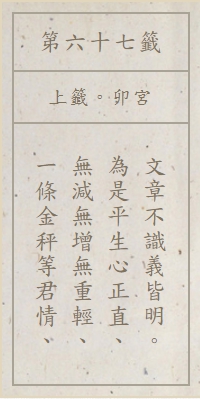 第六十七籤
上籤。卯宮
一條金秤等君情、
無減無增無重輕、
為是平生心正直、
文章不識義皆明。